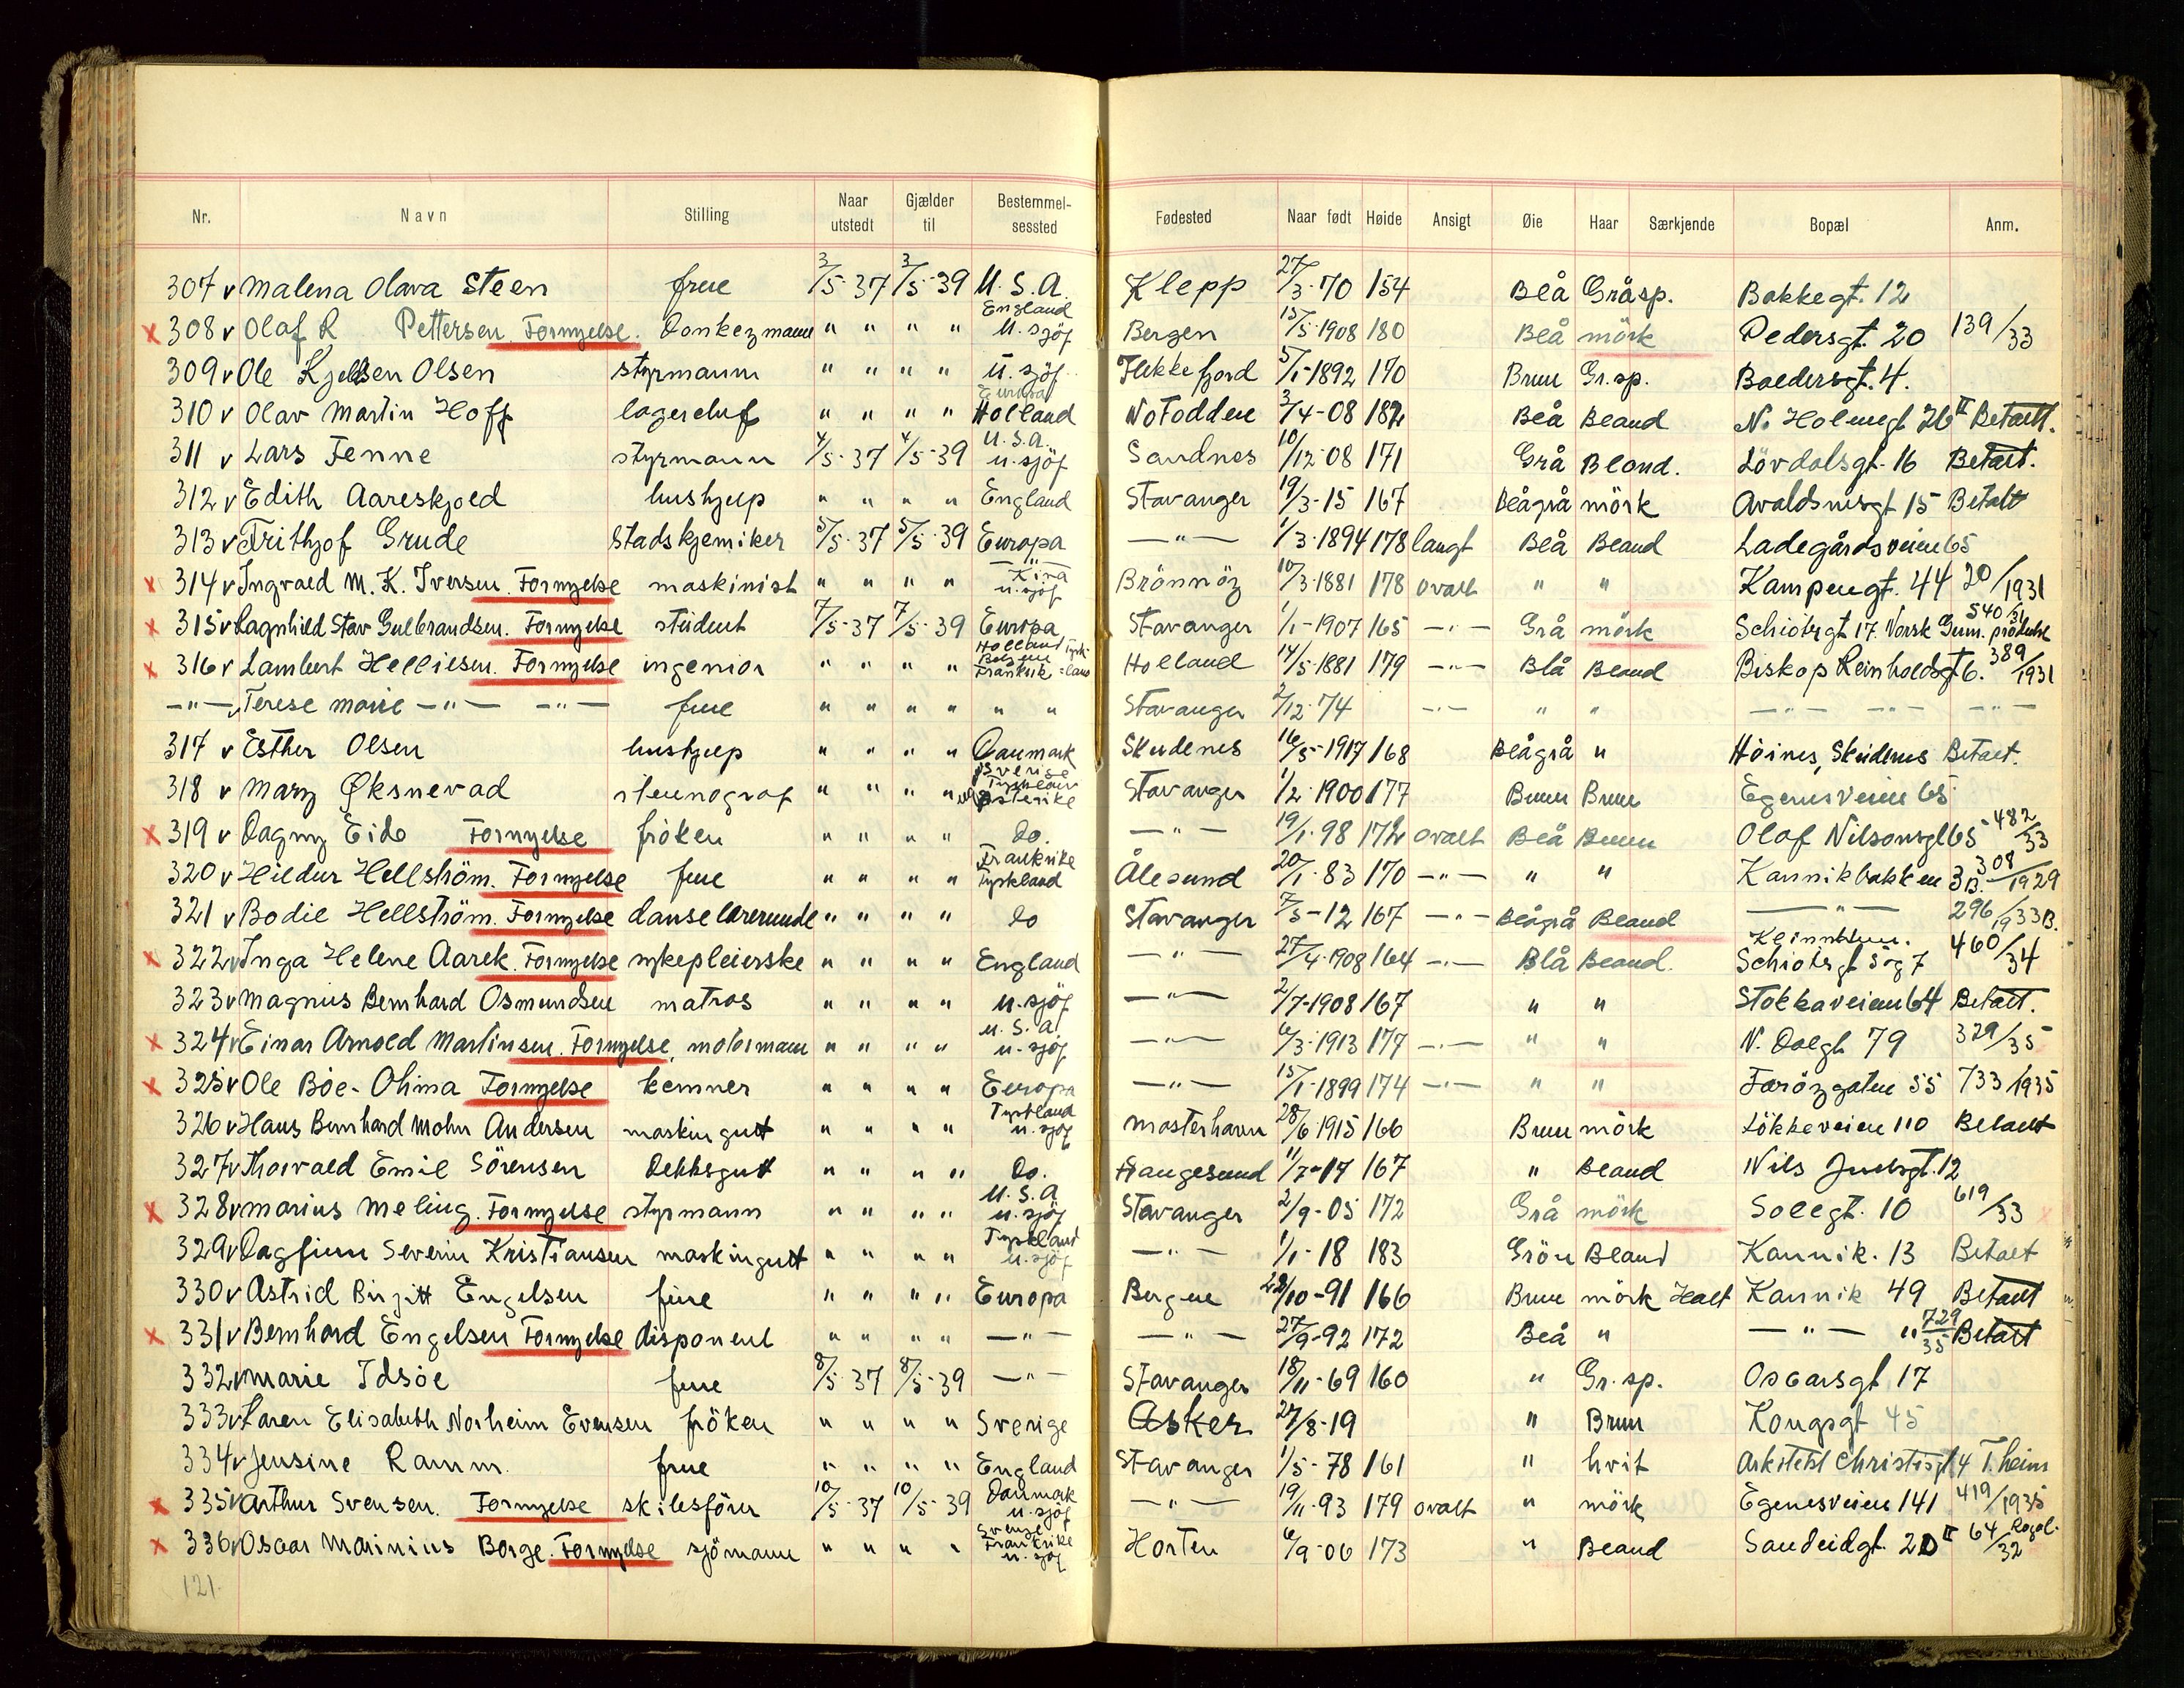 Nr. Navn Stilling Naar utstedt Gjælder til Bestemmelsessted Fødested Naar født Høide Ansigt Øie Haar Særkjende Bopæl Anm.
307 v Malena Olava Steen frue 3/5-37 3/5-39 U.S.A. Klepp 27/3-70 154 Blå Gråsp. Bakkegt. 12
x 308 v Olaf R Pettersen. Fornyelse. Donkeymann " " " " England U. sjöf Bergen 15/5-1908 180 Blå mörk Pedersgt. 20 139/33
309 v Ole Kjeldsen Olsen styrmann " " " " U. sjöf. Flekkefjord 5/1-1892 170 Brun Gr.sp. Baldersgt. 4.
310 v Olav Martin Hoff lagerchef " " " " Europa Holland Notodden 3/4-08 182 Blå Bland N. Holmegt 26 II Betalt.
311 v Lars Tenne styrmann 4/5-37 4/5-39 U.S.A. u. sjöf Sandnes 10/12-08 171 Grå Blond. Lövdalsgt. 16 Betalt.
312 v Edith Aareskjold hushjelp " " " " England Stavanger 19/3-15 167 Blågrå mörk Avaldsnesgt 15 Betalt
313 v Frithjof Grude Stadskjemiker 5/5-37 5/5-39 Europa —"— 1/3-1894 178 langt Blå Bland Ladegårdsveien 65
x 314 v Ingvald M. K. Iversen. Fornyelse maskinist " " " " —"— Kina u. sjöf Brönnöy 10/3-1881 178 ovalt " " Kampengt. 44 20/1931
x 315 v Ragnhild Stav Gulbrandsen. Fornyelse student 7/5-37 7/5-39 Europa Stavanger 1/1-1907 165 —"— Grå mörk Schiötzgt 17. Norsk Gum. produkte 540/31
x 316 v Lambert Helliesen. Fornyelse ingeniör " " " " Holland Belgien Frankrike Tyskland Holland 14/5-1881 179 —"— Blå Bland Biskop Reinholdsgt 6. 389/1931
—"— v Terese Marie —"— —"— frue " " " " " " Stavanger 2/12-74 —"— " " —"— —"— —"—
317 v Esther Olsen hushjelp " " " " Danmark Skudenes 16/5-1917 168 Blågrå " Höines, Skudenes Betalt.
318 v Mary Øksnevad stenograf " " " " Sverige Tyskland og Østerike Stavanger 1/2-1900 177 Brun Brun Egenesveien 65
x 319 v Dagny Eide Fornyelse fröken " " " " do. —"— 19/1-98 172 ovalt Blå Brun Olaf Nilsonsgt 65 482/33
320 v Hildur Hellström. Fornyelse frue " " " " Frankrike Tyskland Ålesund 20/1-83 170 —"— " " Kannikbakken 3B. 308/1929
321 v Bodil Hellström. Fornyelse danselærerinde " " " " do Stavanger 7/5-12 167 —"— Blågrå Bland —"— 296/1933B.
x 322 v Inga Helene Aarek. Fornyelse sykepleierske " " " " England —"— 27/4-1908 164 —"— Blå Bland. Schiötzgt 5 og 7 460/34
323 v Magnus Bernhard Osmundsen matros " " " " u. sjöf —"— 2/7-1908 167 " " Stokkaveien 64 Betalt.
x 324 v Einar Arnold Martinsen. Fornyelse, motormann " " " " U.S.A. u. sjöf —"— 6/3-1913 177 —"— " " N. Dalgt 79 329/35
x 325 v Ole Böe-Ohma Fornyelse kemner " " " " Europa —"— 15/1-1899 174 —"— " " Færöygaten 55 733/1935
326 v Hans Bernhard Mohn Andersen maskingutt " " " " Tyskland u. sjöf Mosterhavn 28/6 1915 166 Brun mörk Lökkeveien 110 Betalt
327 v Thorvald Emil Sörensen Dekksgutt " " " " do. Haugesund 11/7-17 167 " Bland Nils Juelsgt. 12
x 328 v Marius Meling. Fornyelse styrmann " " " " U.S.A u. sjöf Stavanger 2/9-05 172 Grå mörk Solegt. 10 619/33
329 v Dagfinn Severin Kristiansen maskingutt " " " " Tyskland u. sjöf —"— 1/1-18 183 Grön Bland Kannik. 13 Betalt
330 v Astrid Birgitt Engelsen frue " " " " Europa Bergen 28/10-91 166 Brun mörk Halt Kannik 49 Betalt
x 331 v Bernhard Engelsen Fornyelse disponent " " " " —"— —"— 27/9-92 172 Blå " —"— " 729/35 Betalt
332 v Marie Idsöe frue 8/5-37 8/5-39 —"— Stavanger 18/11-69 160 " Gr.sp. Oscarsgt 17
333 v Karen Elisabeth Norheim Evensen fröken " " " " Sverige Asker 27/8-19 " Brun Kongsgt 45
334 v Jensine Ramm. frue " " " " England Stavanger 1/5-78 161 " hvit Arkitekt Christisgt 4 T.heim
x 335 v Arthur Svensen. Fornyelse skibsförer 10/5-37 10/5-39 Danmark u. sjöf —"— 19/11-93 179 ovalt " mörk Egenesveien 141 419/1935
x 336 v Oscar Marinius Borge. Fornyelse sjömann " " " " Sverige Frankrike u. sjöf Horten 6/9-06 173 " Bland Sandeidgt. 20 II 64/32 Rogal.
121.